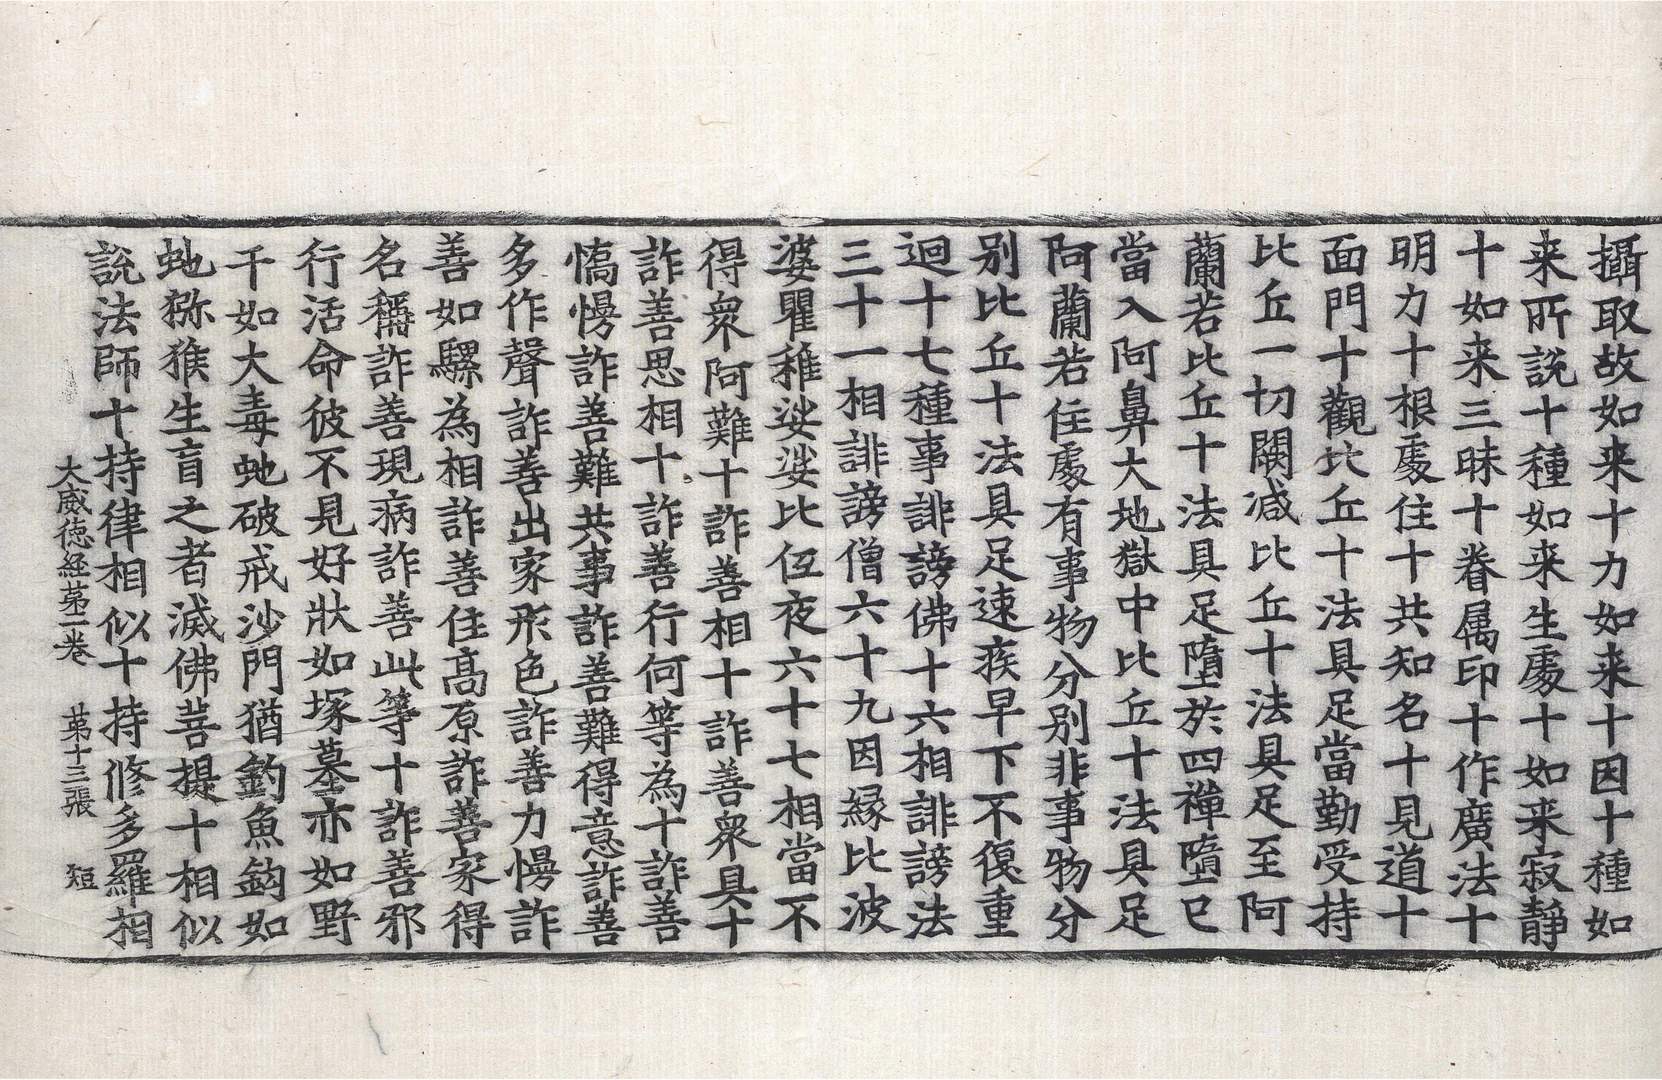 攝取故如来十力如来十因十種如
来所說十種如来生處十如来寂静
十如来三昧十眷属印十作廣法十
明力十根處住十共知名十見道十
面門十觀比丘十法具足當勤受持
比丘一切闕减比丘十法具足至阿
蘭若比丘十法具足墮於四禪墮已
當入阿鼻大地獄中比丘十法具足
阿蘭若住處有事物分別非事物分
別比丘十法具足速疾早下不復重
迴十七種事誹謗佛十六相誹謗法
三十一相誹謗僧六十九因緣比波
婆瞿稚娑娑比伍夜六十七相當不
得衆阿難十詐善相十詐善衆具十
詐善思相十詐善行何等為十詐善
憍慢詐善難共事詐善難得意詐善
多作聲詐善出家形色詐善力慢詐
善如騾為相詐善住高原詐善家得
名稱詐善現病詐善此等十詐善邪
行活命彼不見好狀如塚墓亦如野
干如大毒虵破戒沙門猶釣魚鈎如
虵猕猴生盲之者滅佛菩提十相似
說法師十持律相似十持修多羅相
大威徳経苐一巻 苐十三張 短